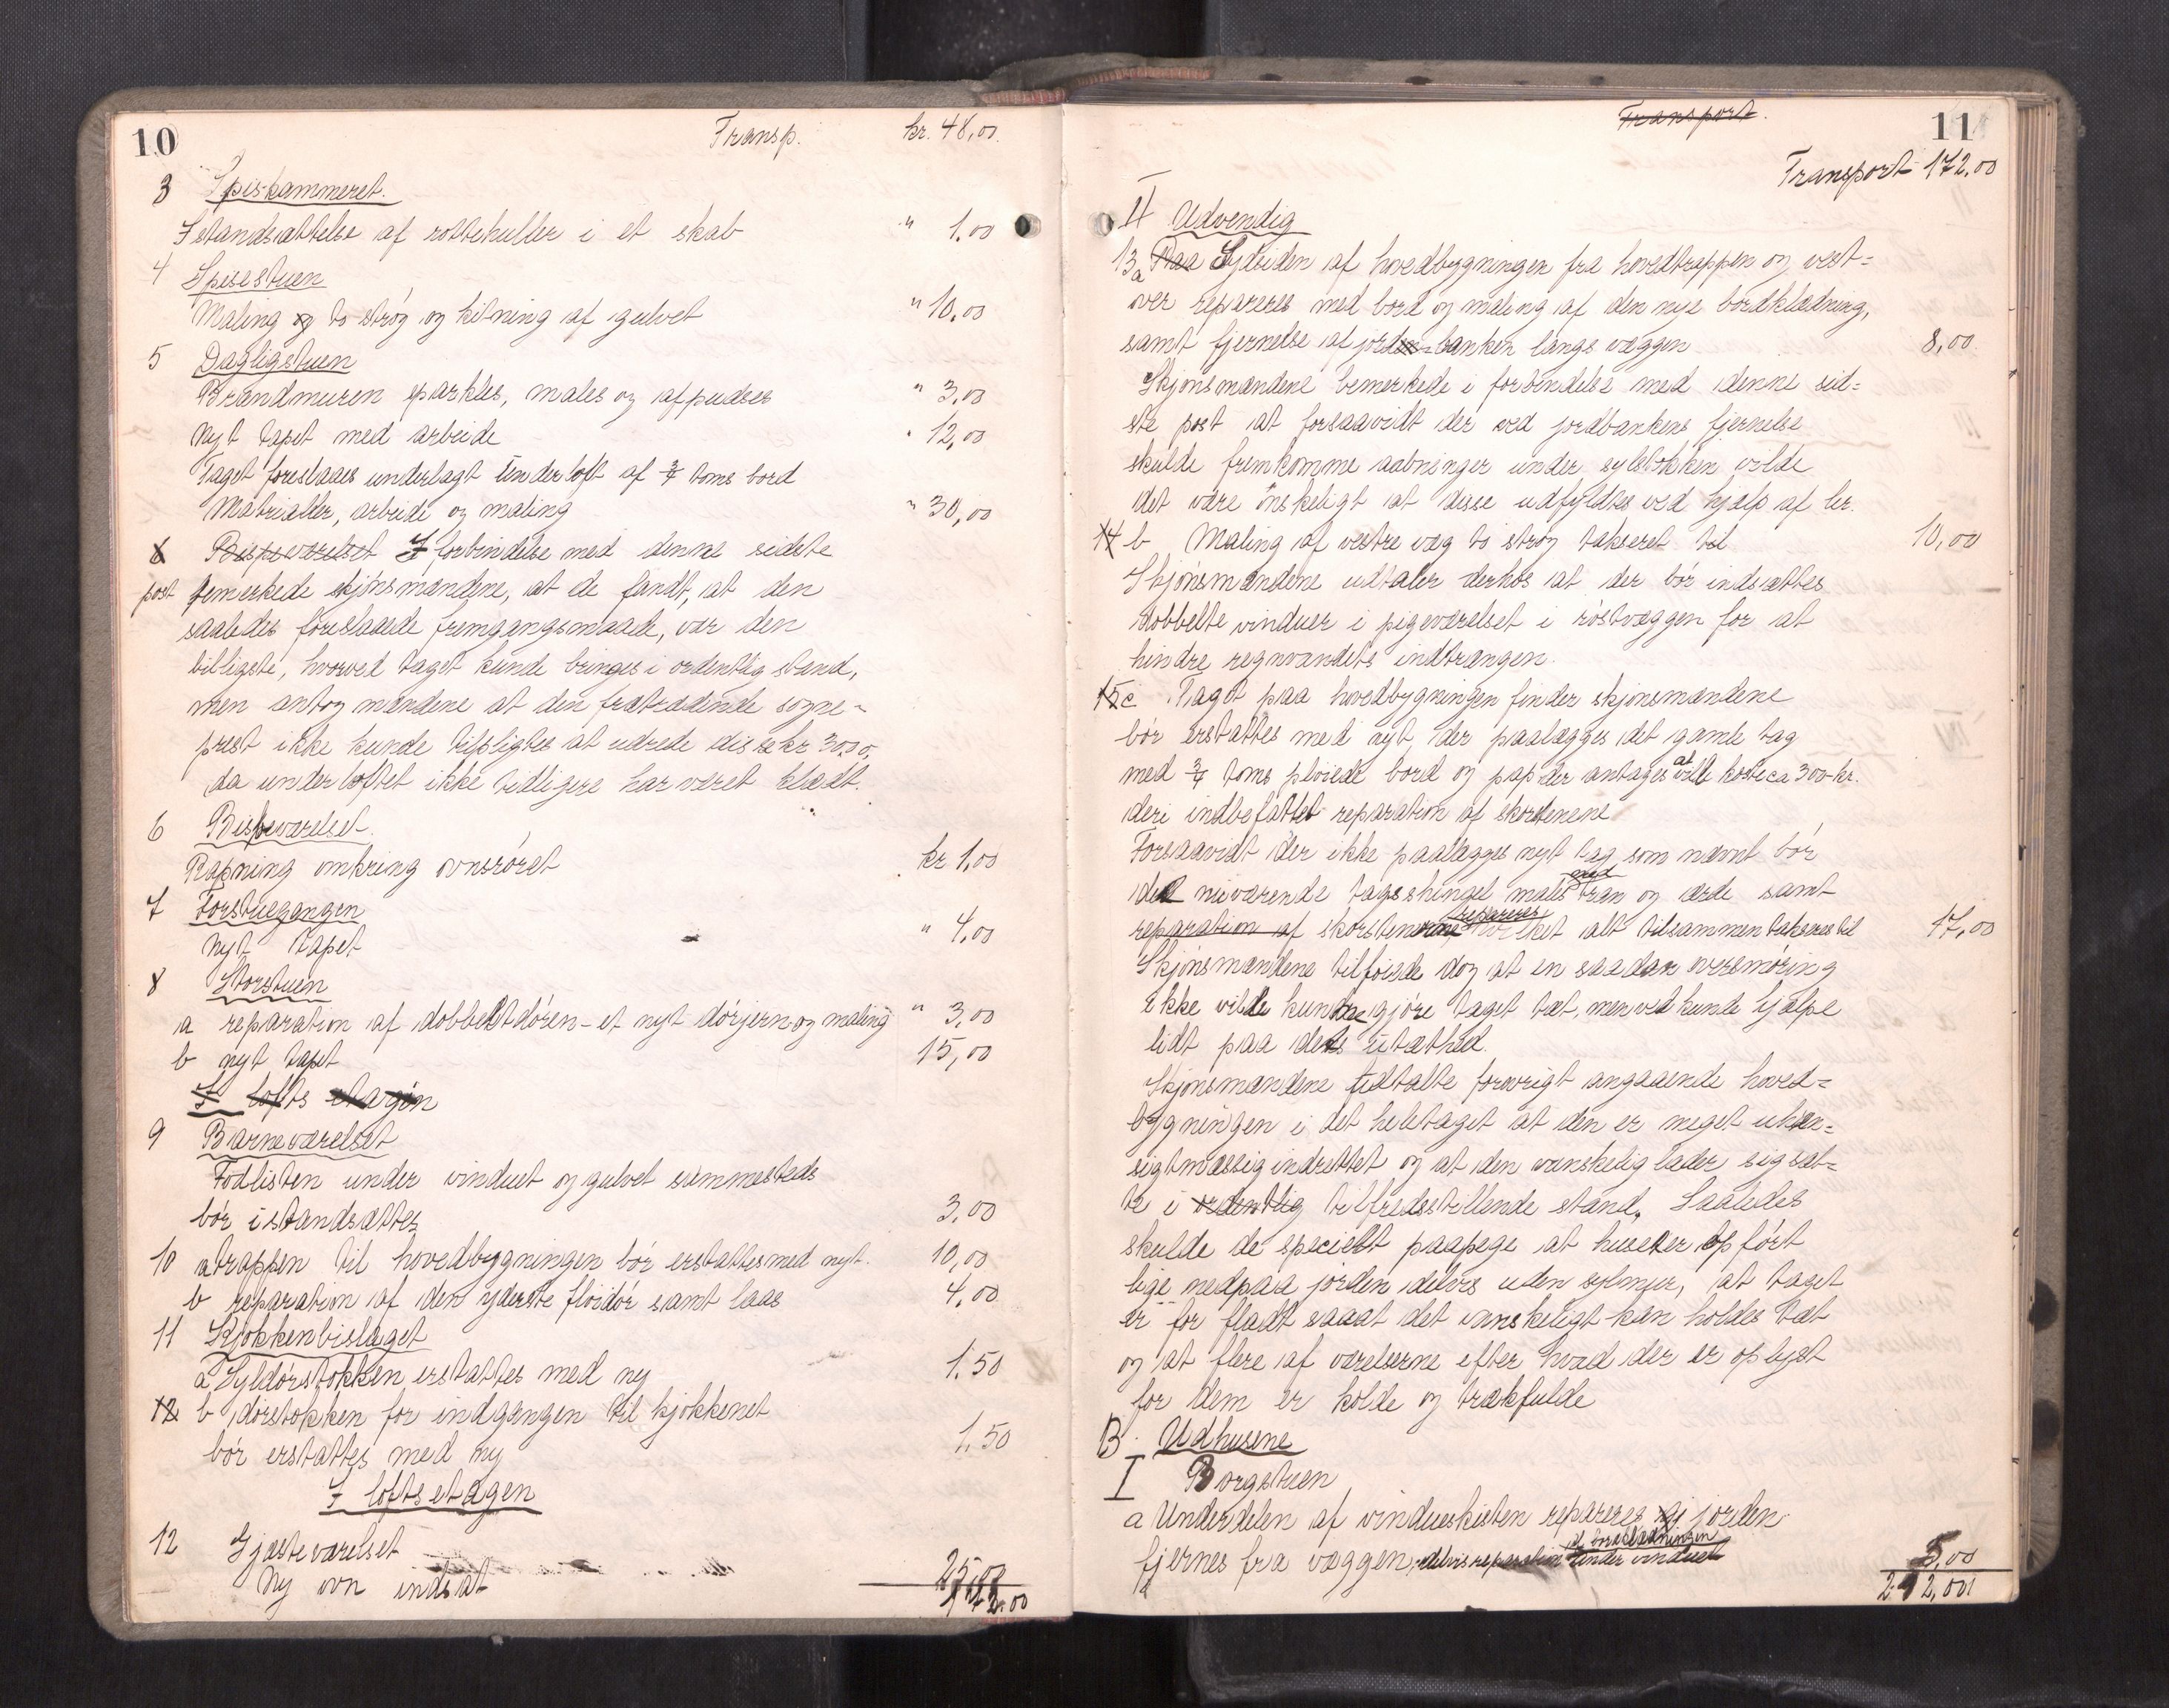 10
Transp. kr. 48,00.
3 Spiskammeret.
Istandsættelse af rottehuller i et skab " 1.00
4 Spisestuen
Maling og to strøg og kitning af gulvet " 10.00
5 Dagligstuen
Brandmuren sparkles, males og afpudses " 3,00
Nyt tapet med arbeide " 12,00
Taget foreslaaes underlagt underloft af 3/4 toms bord
Matrialler, arbeide og maling " 30,00
6 Bispeværelset I forbindelse med denne sidste
post bemerkede skjønsmændene, at de fandt, at den
saaledes foreslaaede fremgangsmaade, var den
billigste, hvorved taget kunde bringes i ordentlig stand,
men antog mændene at den fratrædende sogne-
prest ikke kunde tilpligtes at udrede disse kr 30,00,
da underloftet ikke tidligere har været klædt.
6 Bispeværelset.
Rapning omkring ovnsrøret kr 1,00
7 Forstuegangen
Nyt tapet " 4,00
8 Storstuen
a reparation af dobbeltdøren - et nyt dørjern og maling " 3,00
b nyt tapet 15,00
I lofts etagen
9 Barneværelset
Fodlisten under vinduet og gulvet sammesteds
bør istandsættes 3,00
10 a trappen til hovedbygningen bør erstattes med nyt. 10,00
b reparation af den yderste fløidør samt laas 4,00
11 Kjøkkenbislaget
a Syldørstokken erstattes med ny 1.50
12 b dørstokken for indgangen til kjøkkenet
bør erstattes med ny 1,50
I loftsetagen
12 Gjæsteværelset
Ny ovn indsat 25,00
172.00
11
Transport.
Transport 172,00
II Udvendig
13 a Paa Sydsiden af hovedbygningen fra hovedtrappen og vest=
over repareres med bord og maling af den nye bordklædning,
samt fjernelse af jordbanken langs væggen 8,00.
Skjønsmændene bemerkede i forbindelse med denne sid=
ste post at forsaavidt der ved jordbankens fjernelse
skulde fremkomme aabninger under sylstokken vilde
det være ønskeligt at disse udfyldtes ved hjælp af ler.
14 b Maling af vestre væg to strøg takseret til 10,00
Skjønsmændene udtaler derhos at der bør indsættes
dobbelte vinduer i pigeværelset i røstvæggen for at
hindre regnvandets indtrængen.
15 c Taget paa hovedbygningen finder skjønsmændene
bør erstattes med nyt, der paalægges det gamle tag
med 3/4 toms pløiede bord og pap der antages at ville koste ca 300 kr.
deri indbefattet reparation af skorstenene
Forsaavidt der ikke paalægges nyt tag, som nævnt bør
det nuværende tagsshingel males med tran og ærde samt
reparation af skorstenene repareres hvilket alt tilsammen takseres til 17,00
Skjønsmændene tilføiede dog at en saadan oversmøring
ikke vilde kunne gjøre taget tæt, men vel kunde hjælpe
lidt paa dets utæthed.
Skjønsmændene udtalte forøvrigt angaaende hoved=
bygningen i det heletaget at den er meget uhen=
sigtmæssig indrettet og at den vanskelig lader sig sæt=
te i ordentlig tilfredsstillende stand. Saaledes
skulde de specielt paapege at huset er opført
lige nedpaa jorden delvis uden sylmur, at taget
er for fladt saaat det vanskeligt kan holdes tæt
og at flere af værelserne efter hvad der er oplyst
for dem er kolde og trækfulde
B. Udhusene
I Borgstuen
a Underdelen af vindueskisten repareres og jorden
fjernes fra væggen, delvis reparation af bordklædningen under vinduet 5,00
212,00